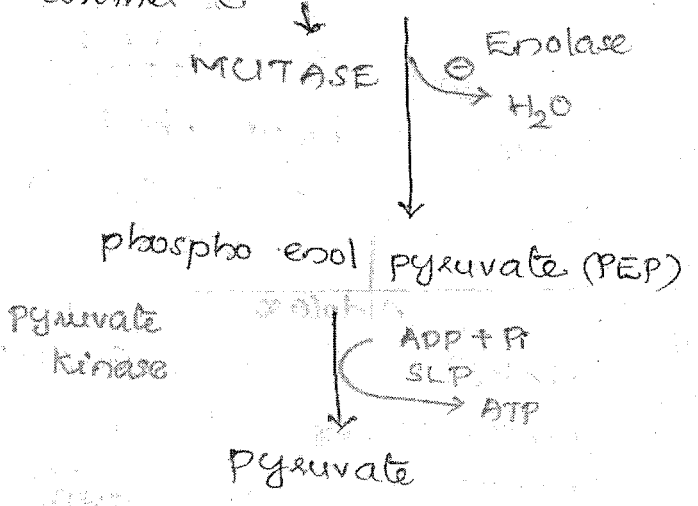 MUTASE
⊖ Enolase
H₂O
phospho enol pyruvate (PEP)
pyruvate
kinase
ADP + Pi
SLP
ATP
pyruvate